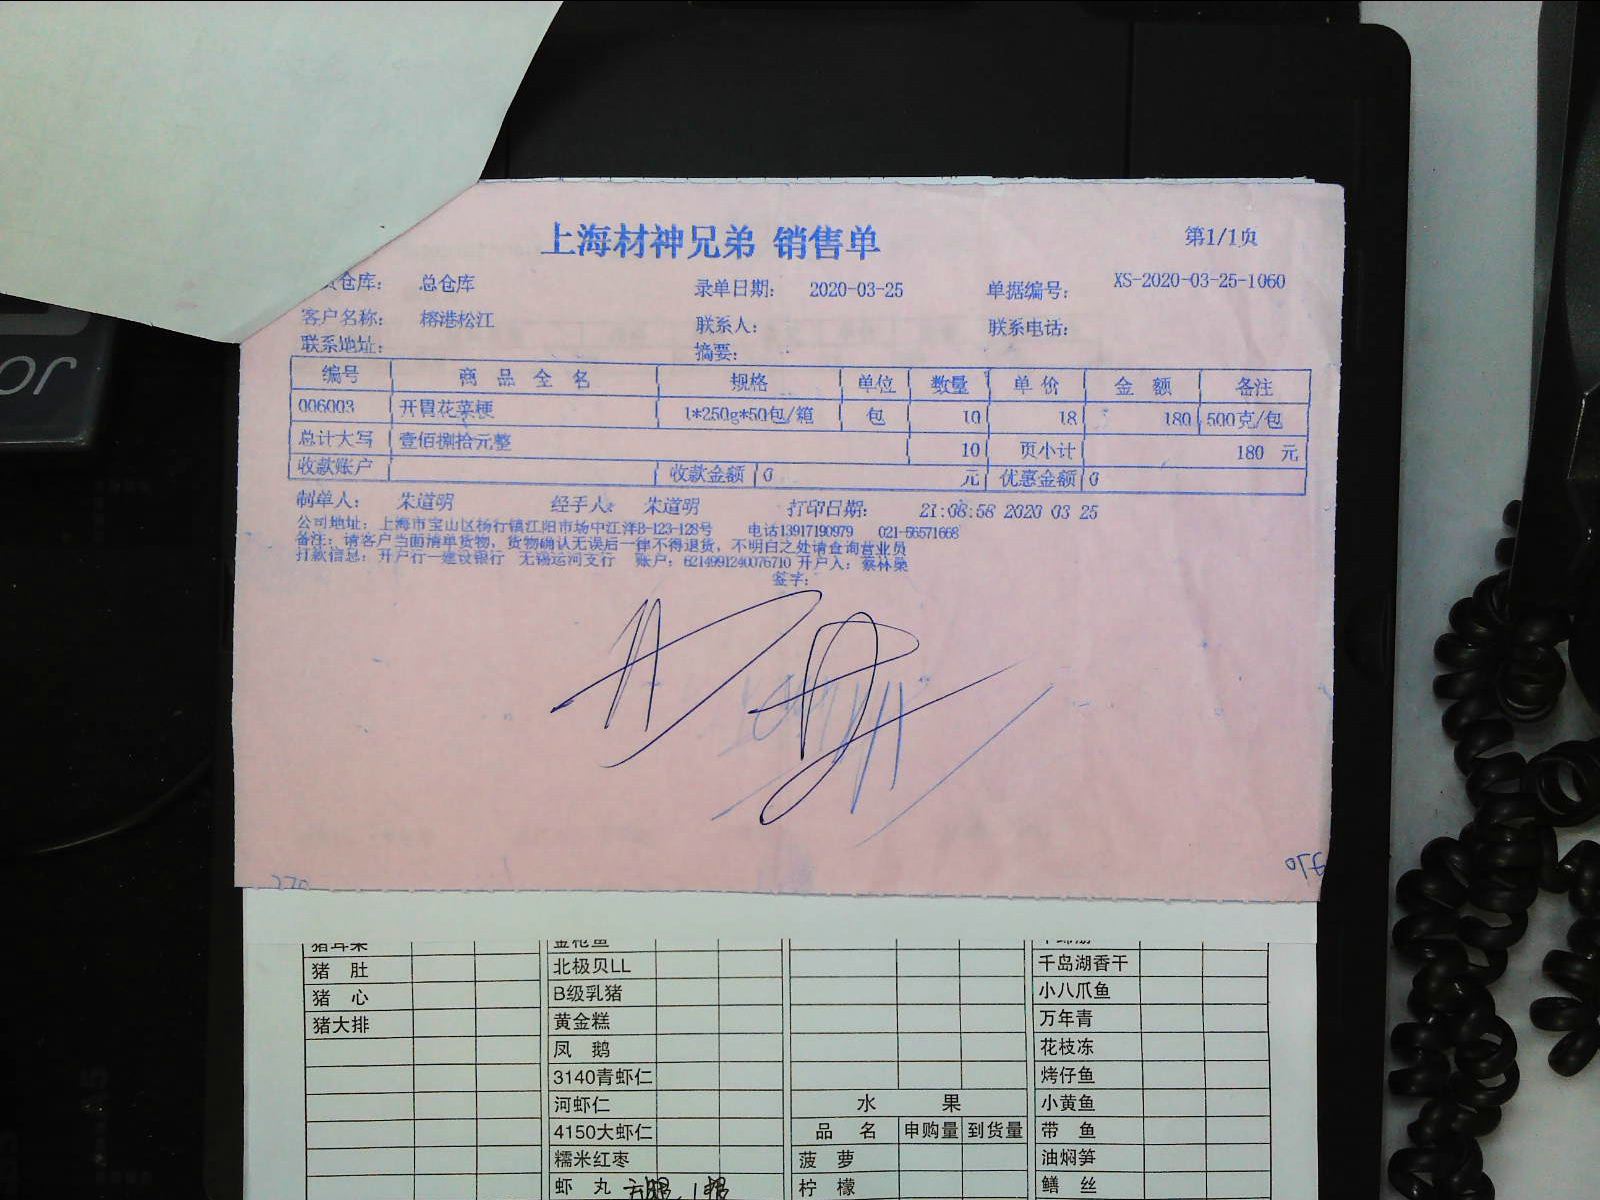 上海材神兄弟 销售单
第1/1页
仓库： 总仓库 录单日期： 2020-03-25 单据编号： XS-2020-03-25-1060
客户名称： 榕港松江 联系人： 联系电话：
联系地址： 摘要：
编号 商品全名 规格 单位 数量 单价 金额 备注
006003 开胃花菜梗 1*250g*50包/箱 包 10 18 180 500克/包
总计大写 壹佰捌拾元整 10 页小计 180 元
收款账户 收款金额 0 元 优惠金额 0
制单人： 朱道明 经手人： 朱道明 打印日期： 21:08:58 2020 03 25
公司地址： 上海市宝山区杨行镇江阳市场中江洋B-123-128号 电话13917190979 021-56571668
备注：请客户当面清单货物，货物确认无误后一律不得退货，不明白之处请查询营业员
打款信息：开户行—建设银行 无锡运河支行 账户：6214991240076710 开户人：蔡林荣
签字：
猪肚 北极贝LL 千岛湖香干
猪心 B级乳猪 小八爪鱼
猪大排 黄金糕 万年青
凤鹅 花枝冻
3140青虾仁 烤仔鱼
河虾仁 水果 小黄鱼
4150大虾仁 品名 申购量 到货量 带鱼
糯米红枣 菠萝 油焖笋
虾丸 柠檬 鳝丝